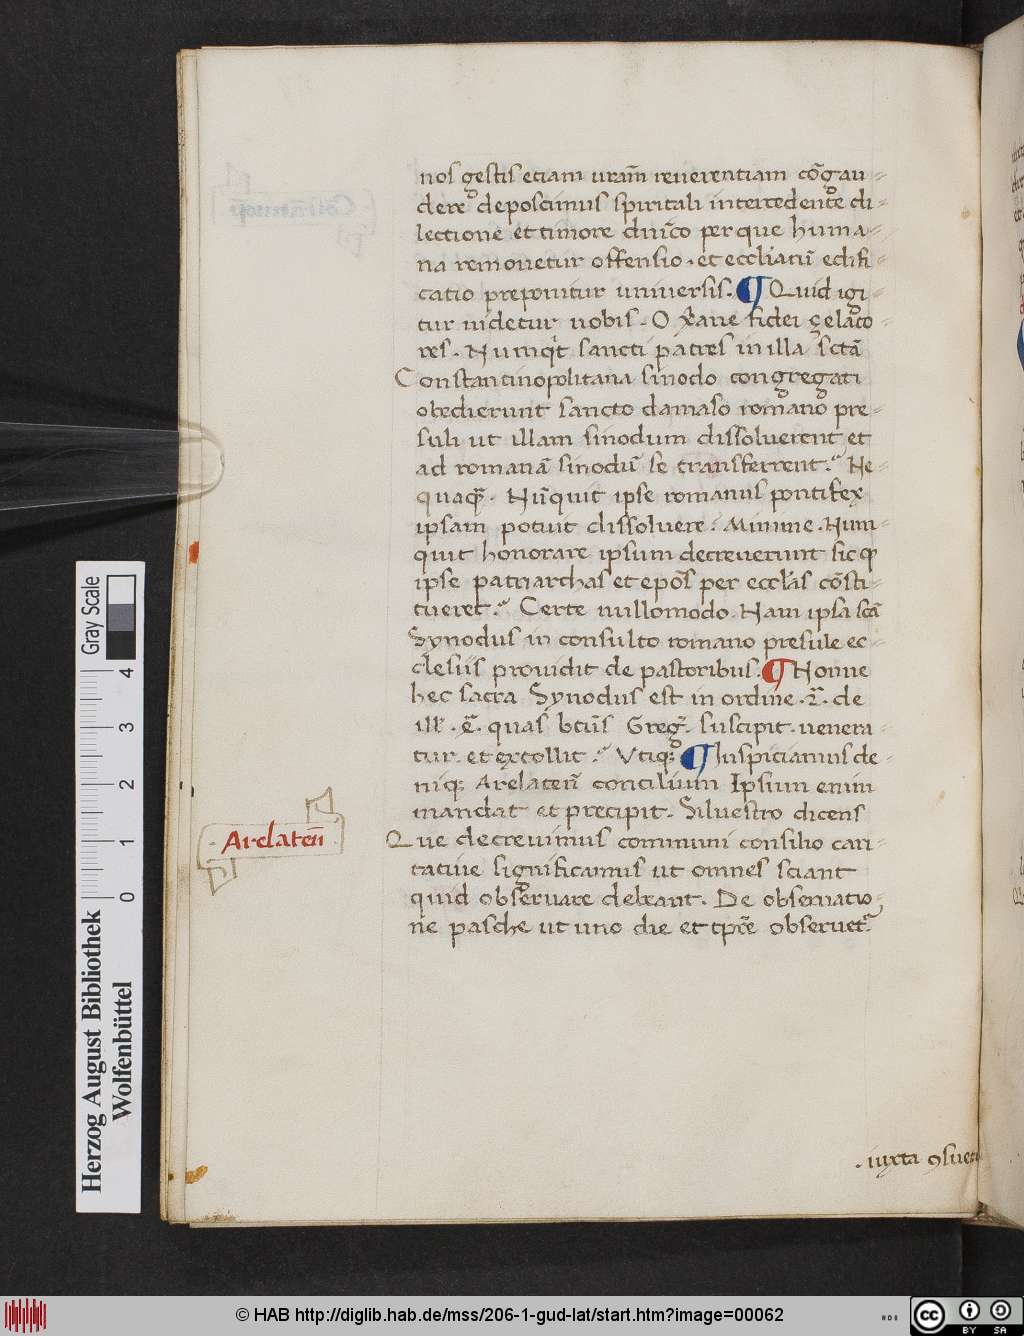 nos gestis etiam uram̅ reuerentiam co̅gau⸗
dere deposcimus spiritali intercedente di⸗
lectione et timore diui̅co per que huma⸗
na remouetur offensio. et eccl̅iatu̅ edifi⸗
catio preponitur uniuersis. ¶ Quid igi⸗
tur uidetur uobis. O xp̅iane fidei çelato
res. Numq̅t sancti patres in illa scta̅
Constantinopolitana sinodo congregati
obedierunt sancto damaso romano pre⸗
suli ut illam sinodum dissoluerent et
ad romana̅ sinodu̅ se transferrent. Ne⸗
quaq̅. Nu̅quit ipse romanus pontifex
ipsam potuit dissoluere. Minime. Num⸗
quit honorare ipsum decreuerunt sic ꝙ
ipse patriarchas et ep̅os per eccl̅as co̅sti⸗
tueret. Certe nullomodo. Nam ipsa sca̅
Synodus in consulto romano presule ec⸗
clesiis prouidit de pastoribus. ¶ Nonne
hec sacra Synodus est in ordine .2̅. de
ill̅. 4̅. quas btu̅s Greg̅. suscipit. uenera⸗
tur. et extollit. Utiqꝫ ¶ Inspiciamus de⸗
niqꝫ Arelaten̅ concilium Ipsum enim
mandat et precipit. Siluestro dicens
Que decreuimus communi consilio cari⸗
tatiue significamus ut omnes sciant
quid obseruare debeant. De obseruatio⸗
ne pasche ut uno die et tp̅re obseruet̅
Arelaten̅
. iuxta ꝯsuetu
Herzog August Bibliothek
Wolfenbüttel
0 1 2 3 4
Gray Scale
© HAB http://diglib.hab.de/mss/206-1-gud-lat/start.htm?image=00062
cc BY SA